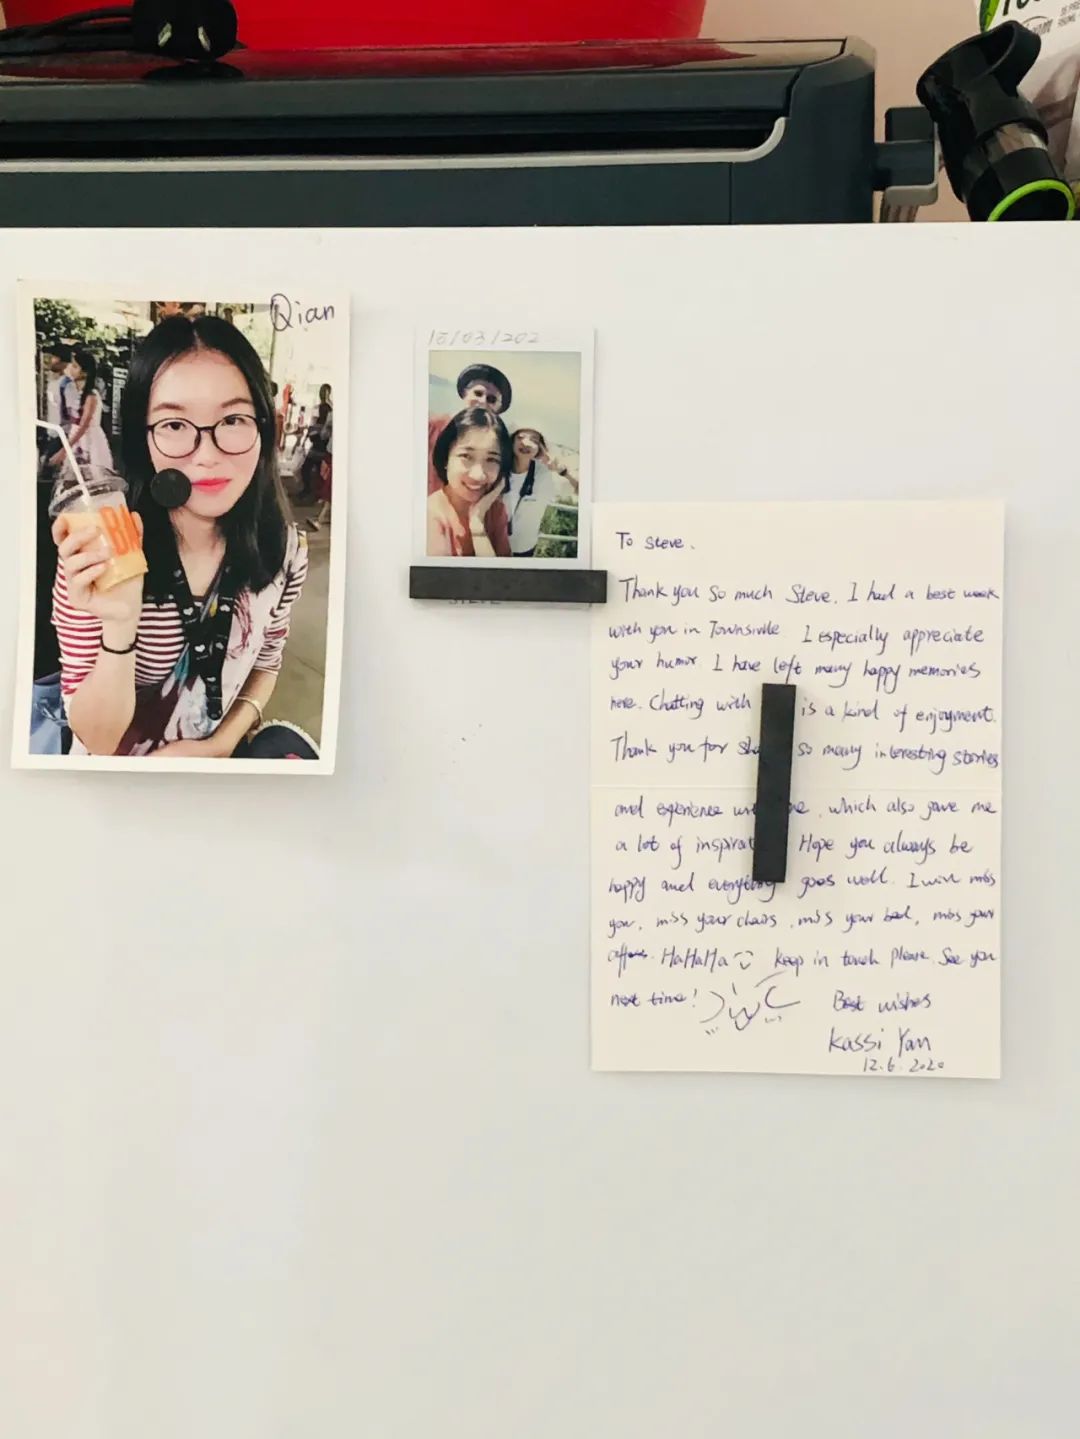 Qian
15/03/202
To Steve.
Thank you so much Steve. I had a best week
with you in Townsville. I especially appreciate
your humor. I have left many happy memories
here. Chatting with is a kind of enjoyment.
Thank you for sha so many interesting stories
and experience , which also gave me
a lot of inspirat Hope you always be
happy and everything goes well. I will miss
you, miss your chairs, miss your bed, miss your
HaHaHa keep in touch please. See you
next time!
Best wishes
Kassi Yan
12.6.2020